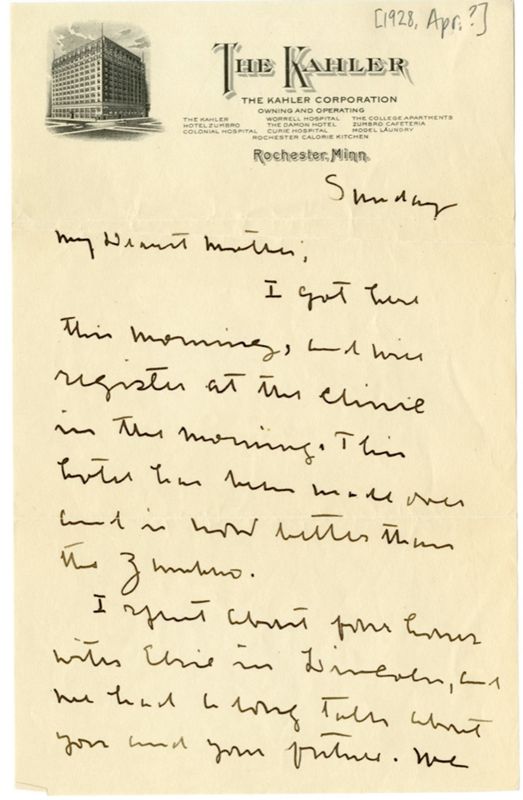 [1928, Apr.?]
THE KAHLER
THE KAHLER CORPORATION
OWNING AND OPERATING
THE KAHLER WORRELL HOSPITAL THE COLLEGE APARTMENTS
HOTEL ZUMBRO THE DAMON HOTEL ZUMBRO CAFETERIA
COLONIAL HOSPITAL CURIE HOSPITAL MODEL LAUNDRY
ROCHESTER CALORIE KITCHEN
Rochester, Minn.
Sunday
My Dearest Mother,
I got here
this morning, and will
register at the clinic
in the morning. This
hotel has been made over
and is now better than
the Zumbro.
I spent about four hours
with Elsie in Lincoln, and
we had a long talk about
you and your future. We